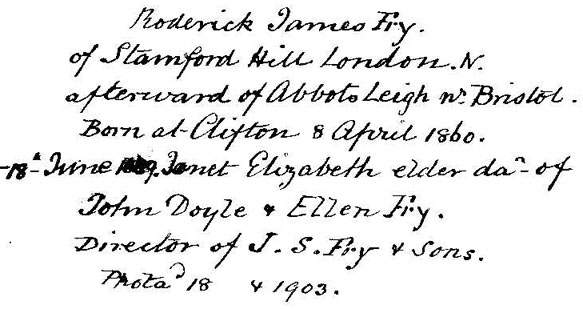 Roderick James Fry.
of Stamford Hill London. N.
afterward of Abbots Leigh nr. Bristol.
Born at Clifton 8 April 1860.
-18th June Janet Elizabeth elder dar. of
John Doyle & Ellen Fry.
Director of J. S. Fry & Sons.
Photad 18 & 1903.